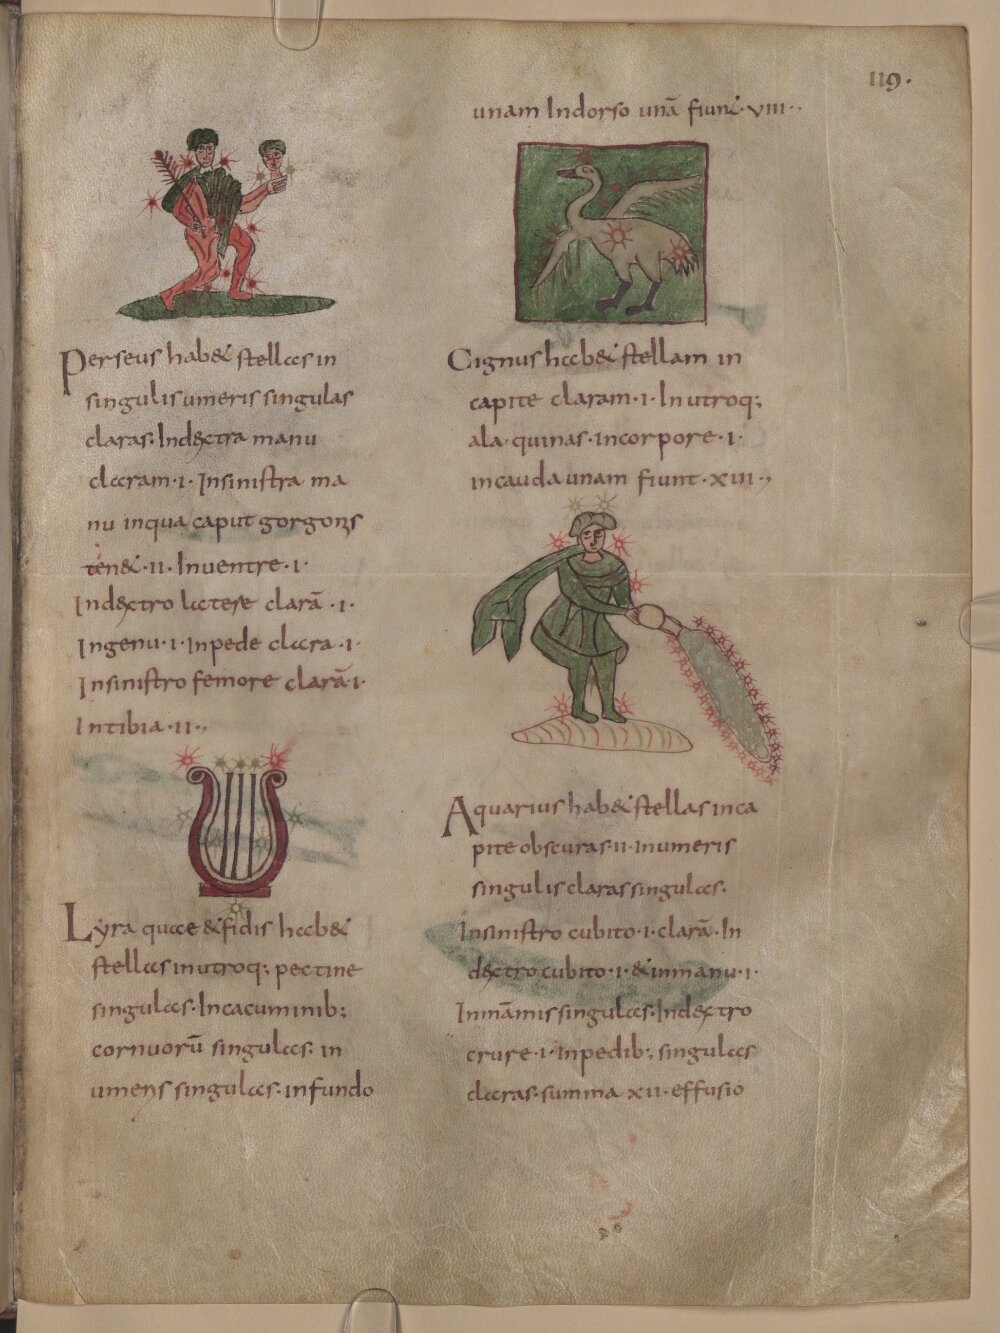 119.
Perseus hab& stellas in
singulis umeris singulas
claras. Indextra manu
claram·i· Insinistra ma
nu inqua caput gorgonis
ten&·ii· Inuentre·i·
Indextro latere clarā·i·
Ingenu·i· Inpede clara·i·
Insinistro femore clarā·i·
Intibia·ii·,
Lyra quae &fidis hab&
stellas inutroq; pectine
singulas· Incacuminib;
cornuorū singulas· in
umeris singulas· infundo
unam Indorso unā fiunt·viii·,
Cignus hab& stellam in
capite claram·i· Inutroq;
ala·quinas·incorpore·i·
incauda unam fiunt·xiii·,
Aquarius hab& stellas inca
pite obscuras·ii·inumeris
singulis claras singulas·
Insinistro cubito·i·clarā·In
dextro cubito·i·&inmanu·i·
Inmāmis singulas· Indextro
crure·i·inpedib; singulas
claras·summa xii·effusio